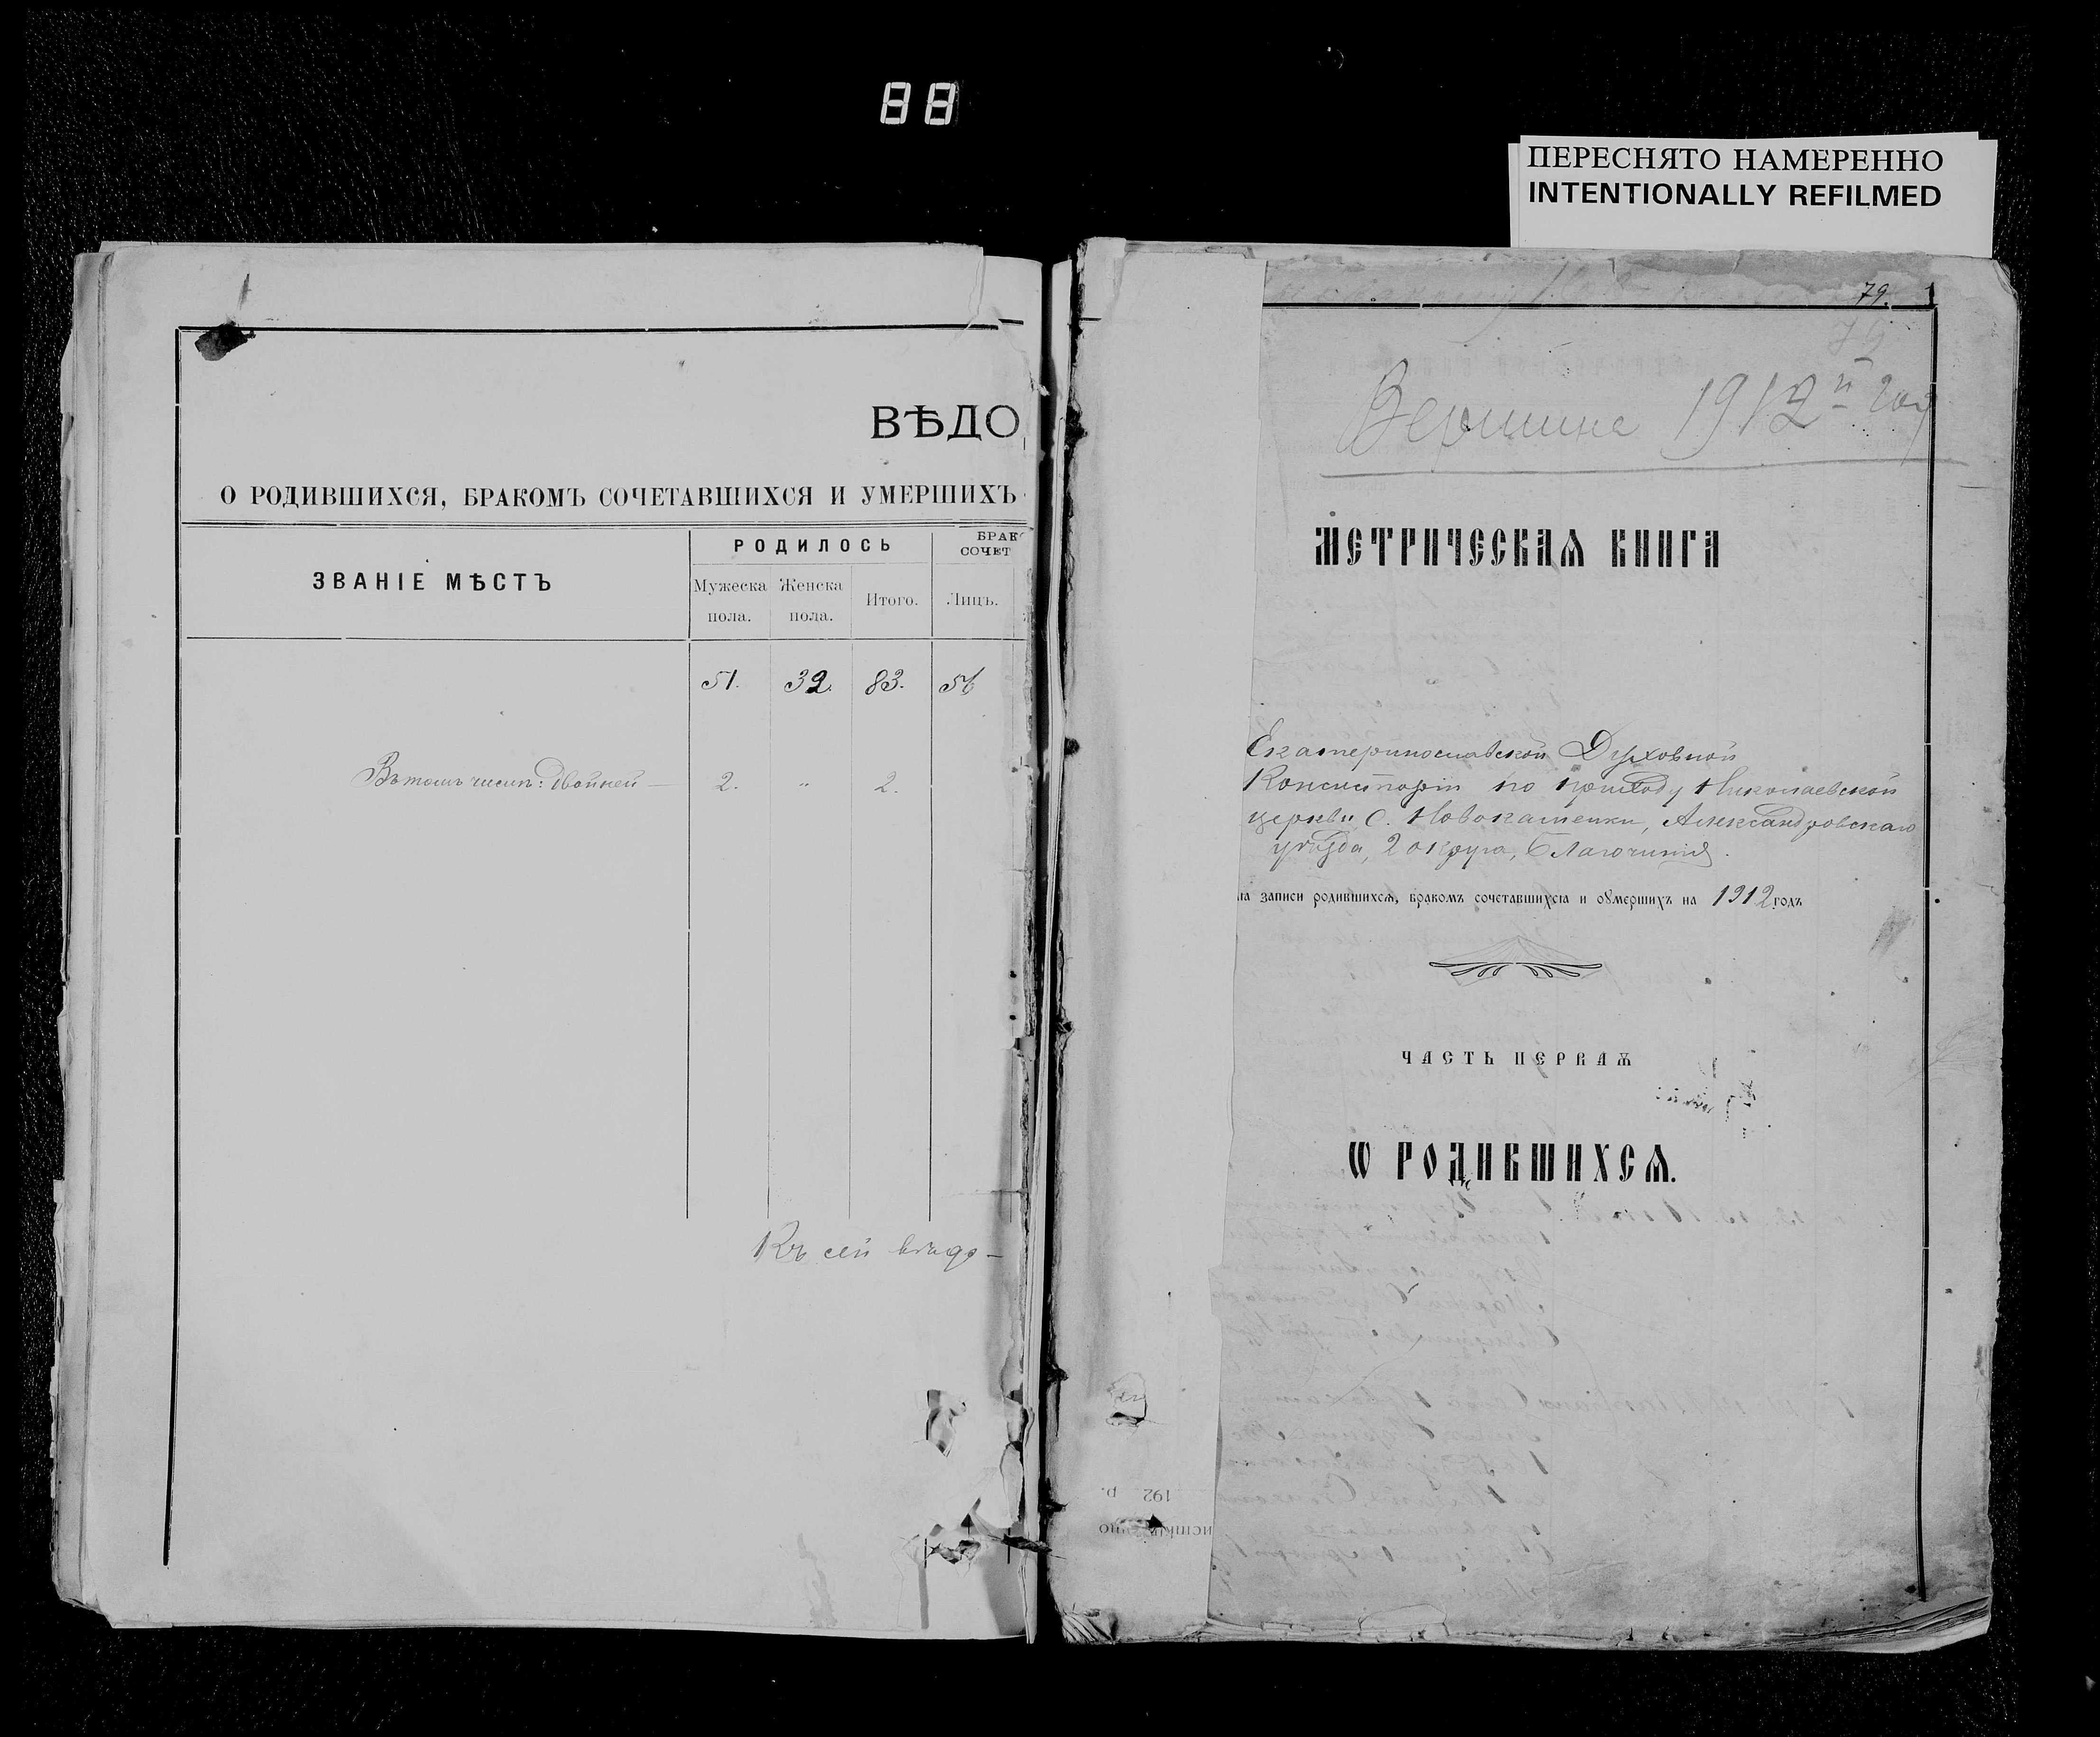 88
ПЕРЕСНЯТО НАМЕРЕННО
INTENTIONALLY REFILMED
ВѢДО
О РОДИВШИХСЯ, БРАКОМЪ СОЧЕТАВШИХСЯ И УМЕРШИХЪ
ЗВАНІЕ МѢСТЪ
РОДИЛОСЬ
БРАК
СОЧЕТ
Мужеска пола.
Женска пола.
Итого.
Лицъ.
51. 32. 83. 56
Въ томъ числѣ: двойней — 2. „ 2.
Къ сей вѣдо-
79.
79
1912й год
МЕТРИЧЕСКАѦ КНИГА
Екатеринославской Духовной
Консисторіи по приходу Николаевской
церкви с. Новокаменки, Александровскаго
уѣзда, 2 округа, Благочинія.
записи родившихсѧ, бракомъ сочетавшихсіа и оумершихъ на 1912 годъ
ЧАСТЬ ПЕРВАѦ
Ѡ РОДИВШИХСѦ.
192 р.